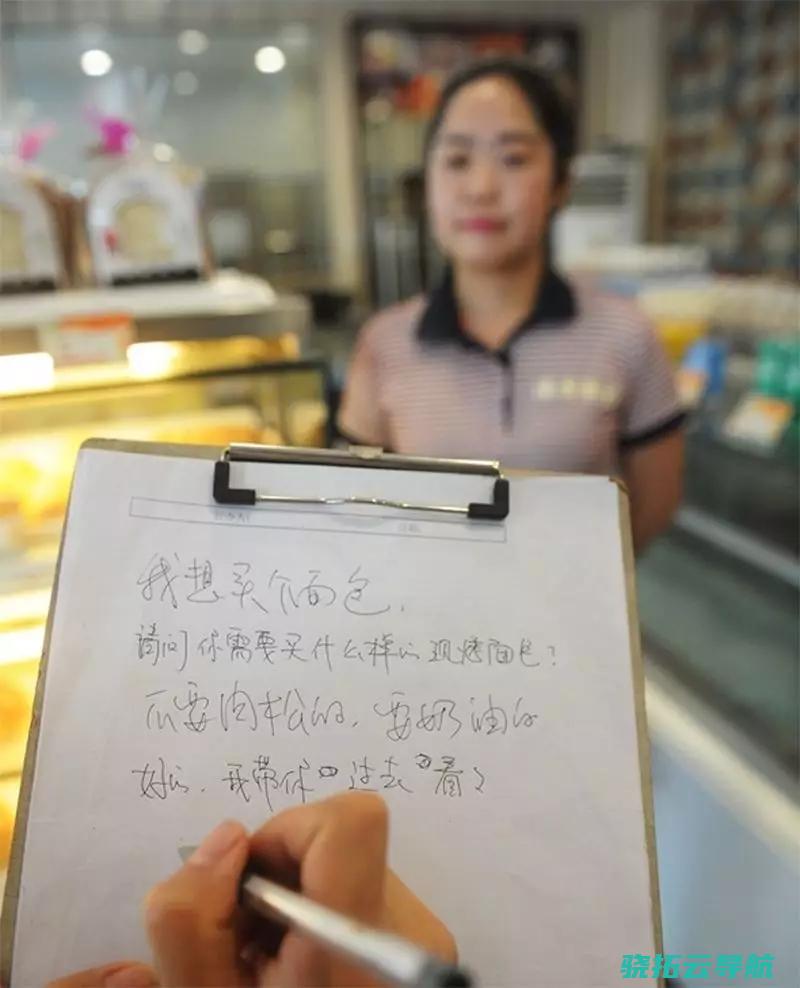 我想买个面包.
请问你需要买什么样的现烤面包?
不要肉松的, 要奶油的
好的. 我带你过去看看
骁拓云导航